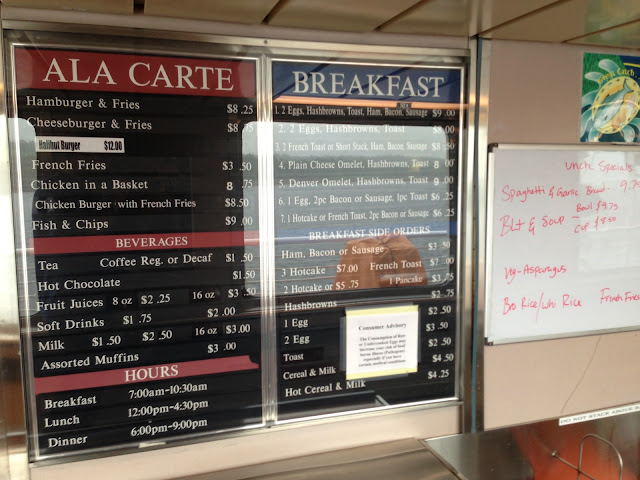 ALA CARTE
Hamburger & Fries $8 .25
Cheeseburger & Fries $8 .75
Halibut Burger $12.00
French Fries $3 .50
Chicken in a Basket 8 .75
Chicken Burger with French Fries $8.50
Fish & Chips $9 .00
BEVERAGES
Tea Coffee Reg. or Decaf $1 .50
Hot Chocolate $1.50
Fruit Juices 8 oz $2 .25 16 oz $3 .50
Soft Drinks $1 .75 $2.00
Milk $1.50 $2 .50 16 oz $3.00
Assorted Muffins $3 .00
HOURS
Breakfast 7:00am-10:30am
Lunch 12:00pm-4:30pm
Dinner 6:00pm-9:00pm
BREAKFAST
1. 2 Eggs, Hashbrowns, Toast, Ham, Bacon, Sausage $9 .00
2. 2 Eggs, Hashbrowns, Toast $8 .00
3. 2 French Toast or Short Stack, Ham, Bacon, Sausage $8 .50
4. Plain Cheese Omelet, Hashbrowns, Toast 8 .00
5. Denver Omelet, Hashbrowns, Toast 9 .00
6. 1 Egg, 2pc Bacon or Sausage, 1pc Toast $6 .25
7. 1 Hotcake or French Toast, 2pc Bacon or Sausage $6 .25
BREAKFAST SIDE ORDERS
Ham, Bacon or Sausage $3 .50
3 Hotcake $7.00 French Toast $7 .00
2 Hotcake or $5 .75 1 Pancake $3 .75
Hashbrowns $2 .75
1 Egg $2.50
2 Egg $3.50
Toast $2.50
Cereal & Milk $4.50
Hot Cereal & Milk $4.25
Consumer Advisory
The Consumption of Raw
or Undercooked Eggs may
Increase your risk of food
borne illness (Pathogens)
especially if you have
certain medical conditions
Lunch Specials
Spaghetti & Garlic Bread - 9.75
Blt & Soup - Bowl $9.75
Cup $8.50
Veg-Asparagus
Bro Rice/Whi Rice French Fries
DO NOT STACK ABOVE